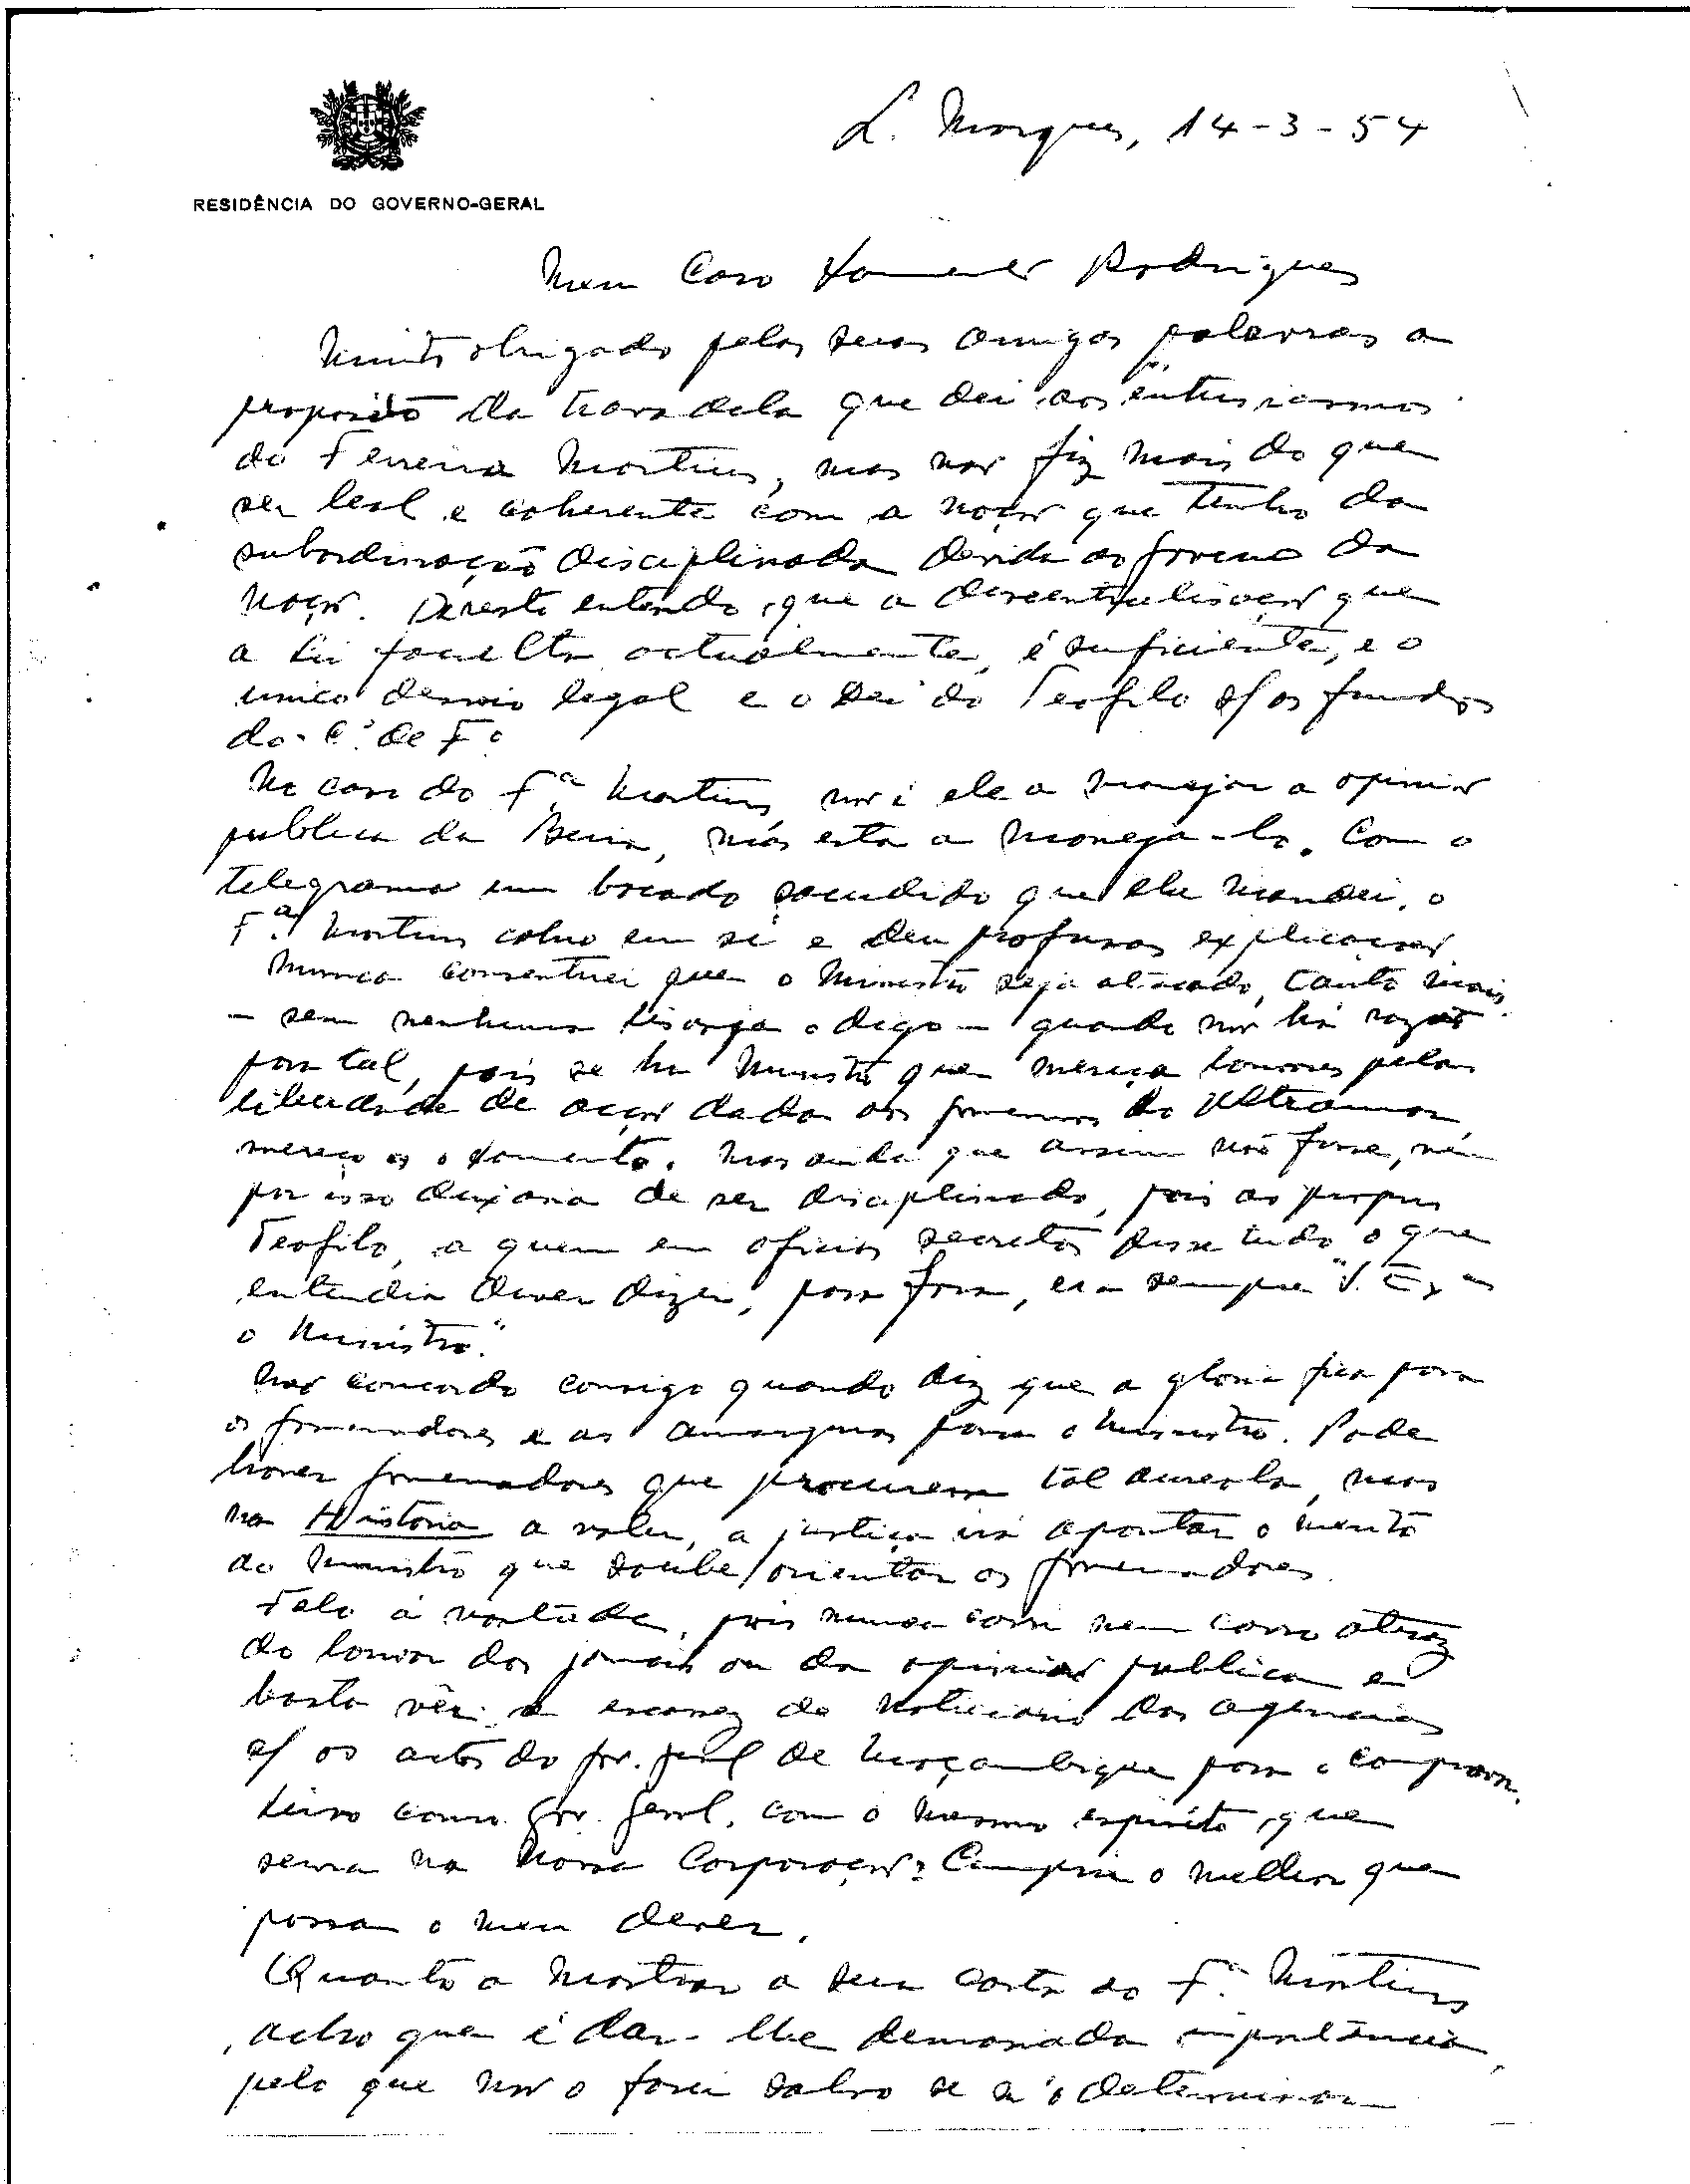 L. Marques, 14-3-54
RESIDÊNCIA DO GOVERNO-GERAL
Meu Caro Rodrigues
Muito obrigado pelas suas amigas palavras a
proposito da travadela que dei aos entusiasmos
do Ferreira Martins, mas não fiz mais do que
ser leal e coherente com a noção que tenho da
subordinação disciplinada devida ao Governo da
Nação. De resto entendo, que a descentralisação que
a Lei faculta actualmente, é suficiente, e o
unico desvio legal e o Dei do Teofilo s/ os fundos
do C. de F.º
No caso do F.ª Martins, não é ele a manejar a opinião
publica da Beira, mas esta a maneja-lo. Com o
telegrama um bocado sacudido que lhe mandei, o
F.ª Martins cahiu em si e deu profusas explicações
Nunca consentirei que o Ministro seja atacado, tanto mais
- sem nenhuma lisonja o digo - quando não há razão
para tal, pois se ha Ministro que mereça louvores pela
liberdade de acção dada aos governos do Ultramar,
merece os o . Mas ainda que assim não fosse, nem
por isso deixaria de ser disciplinado, pois ao proprio
Teofilo, a quem em oficios secretos disse tudo o que
entendia dever dizer, para fora, era sempre "S. Exª
o Ministro."
Não concordo consigo quando diz que a gloria fica para
os governadores e as amarguras para o Ministro. Pode
haver governadores que procurem tal aureola, mas
na História a valer, a justiça irá apontar o merito
do Ministro que soube orientar os governadores.
Falo á vontade, pois nunca corri nem corro atraz
do louvor dos jornais ou da opinião publica e
basta vêr a escassez do noticiario das agencias
s/ os actos do Gov. Geral de Moçambique para o comprovar.
Sirvo como Gov. Geral, com o mesmo espirito, que
servia na nossa Corporação: Cumprir o melhor que
possa o meu dever.
Quanto a mostrar a sua carta ao F.ª Martins
, acho que é dar-lhe demasiada importância,
pelo que não o farei salvo se o determinar